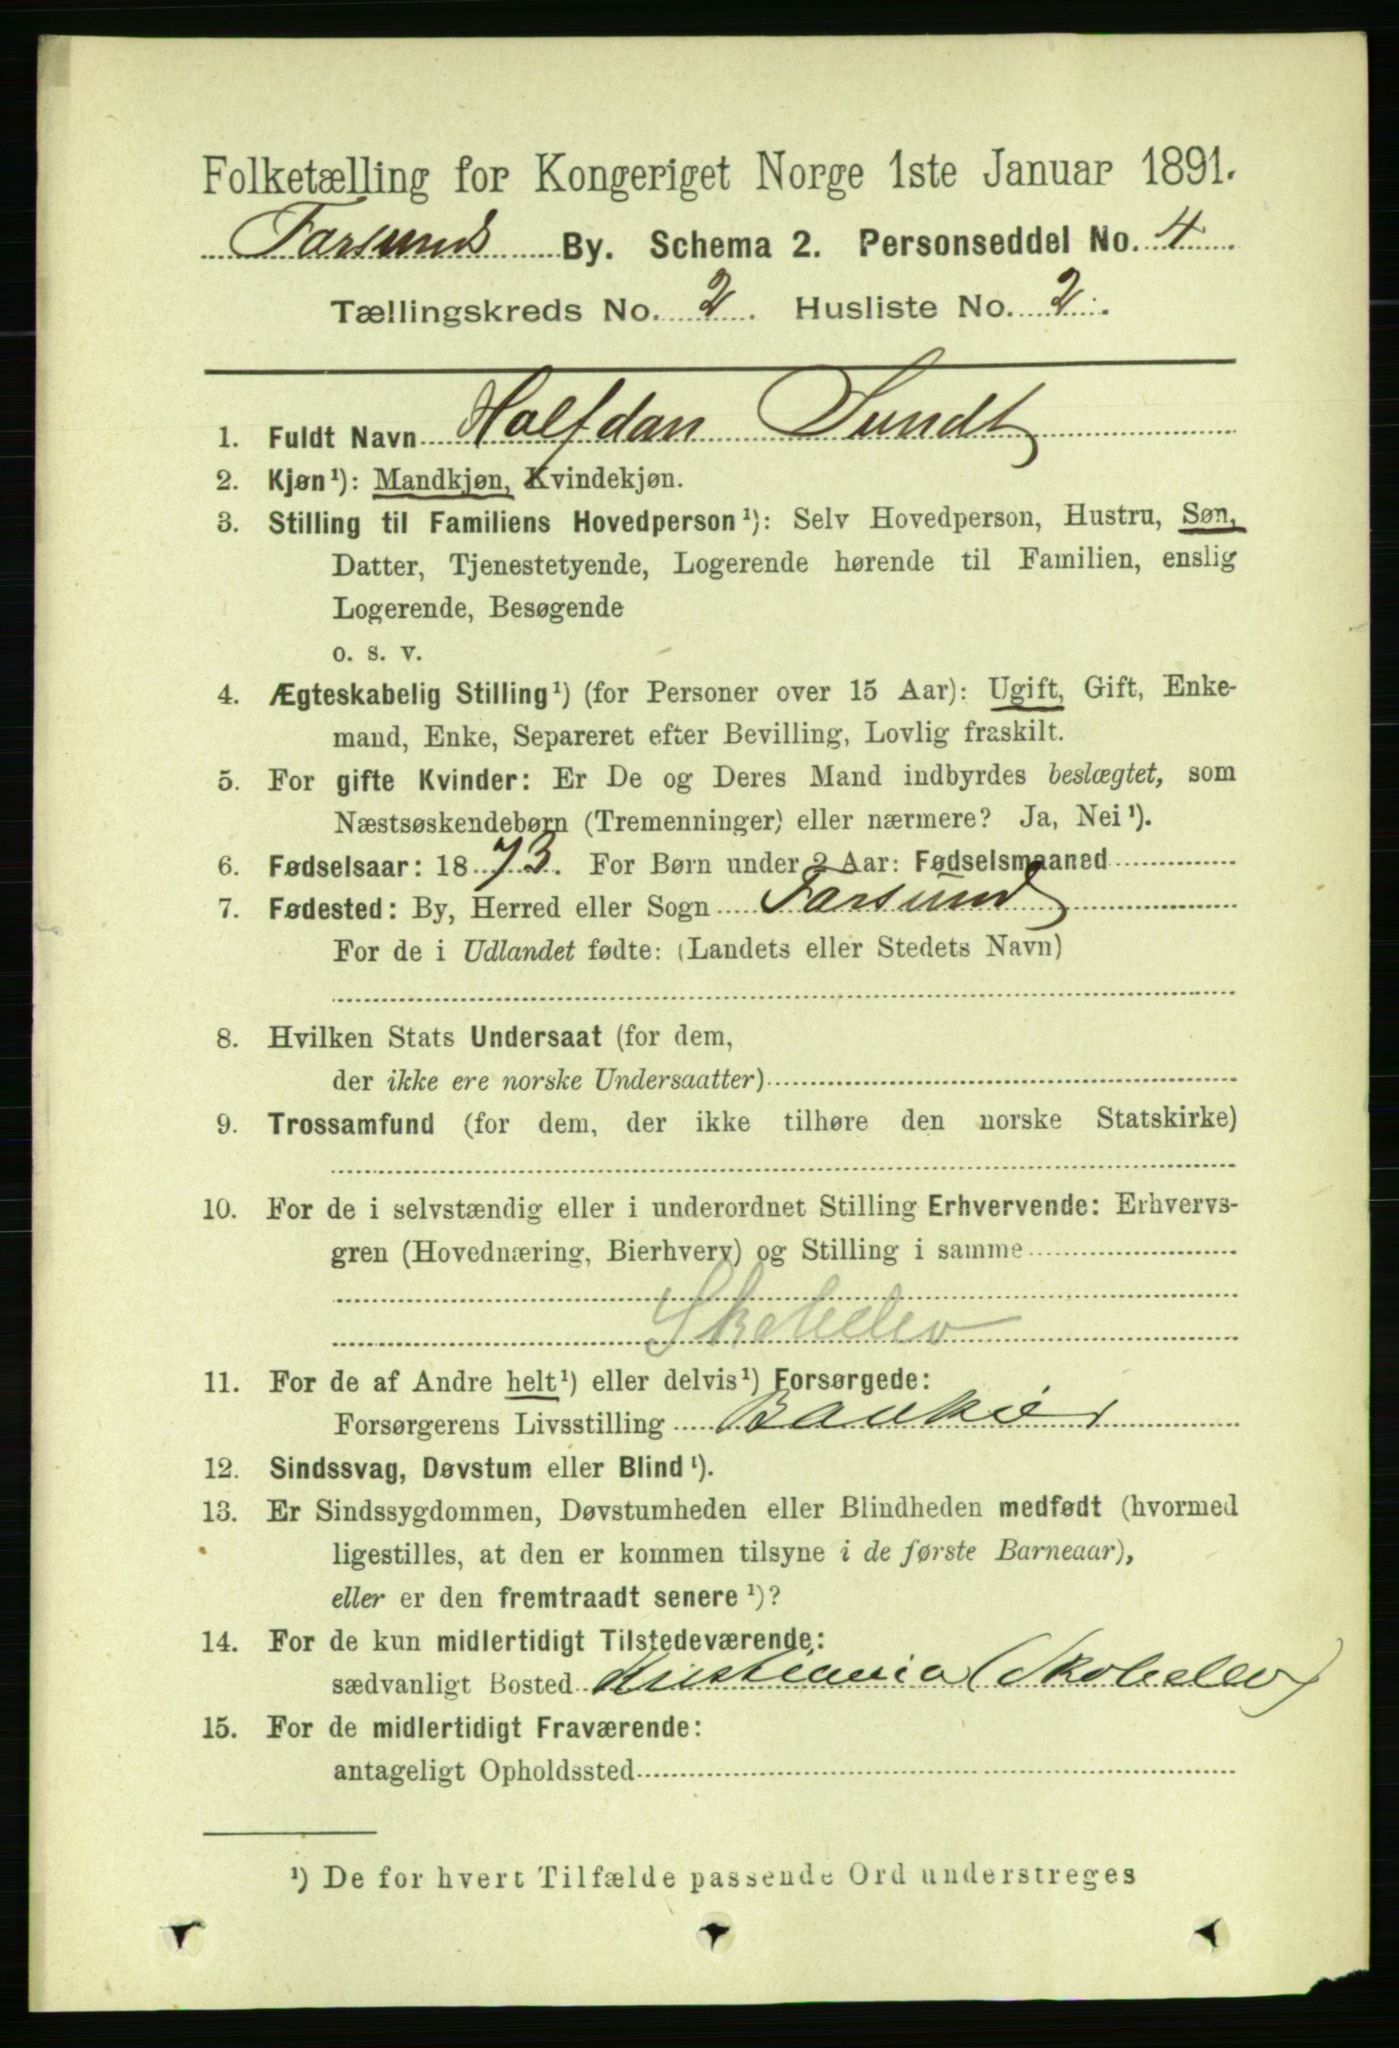 Folketælling for Kongeriget Norge 1ste Januar 1891.
Farsunds By. Schema 2. Personseddel No. 4
Tællingskreds No. 2. Husliste No. 2.
1. Fuldt Navn Halfdan Sundt
2. Kjøn¹): Mandkjøn, Kvindekjøn.
3. Stilling til Familiens Hovedperson¹): Selv Hovedperson, Hustru, Søn,
Datter, Tjenestetyende, Logerende hørende til Familien, enslig
Logerende, Besøgende
o. s. v.
4. Ægteskabelig Stilling¹) (for Personer over 15 Aar): Ugift, Gift, Enke-
mand, Enke, Separeret efter Bevilling, Lovlig fraskilt.
5. For gifte Kvinder: Er De og Deres Mand indbyrdes beslægtet, som
Næstsøskendebørn (Tremenninger) eller nærmere? Ja, Nei¹).
6. Fødselsaar: 1873. For Børn under 2 Aar: Fødselsmaaned
7. Fødested: By, Herred eller Sogn Farsund
For de i Udlandet fødte: (Landets eller Stedets Navn)
8. Hvilken Stats Undersaat (for dem,
der ikke ere norske Undersaatter)
9. Trossamfund (for dem, der ikke tilhøre den norske Statskirke)
10. For de i selvstændig eller i underordnet Stilling Erhvervende: Erhvervs-
gren (Hovednæring, Bierhverv) og Stilling i samme
Skoleelev
11. For de af Andre helt¹) eller delvis¹) Forsørgede:
Forsørgerens Livsstilling Bankier
12. Sindssvag, Døvstum eller Blind¹).
13. Er Sindssygdommen, Døvstumheden eller Blindheden medfødt (hvormed
ligestilles, at den er kommen tilsyne i de første Barneaar),
eller er den fremtraadt senere¹)?
14. For de kun midlertidigt Tilstedeværende:
sædvanligt Bosted Kristiania (Skoleelev)
15. For de midlertidigt Fraværende:
antageligt Opholdssted
¹) De for hvert Tilfælde passende Ord understreges